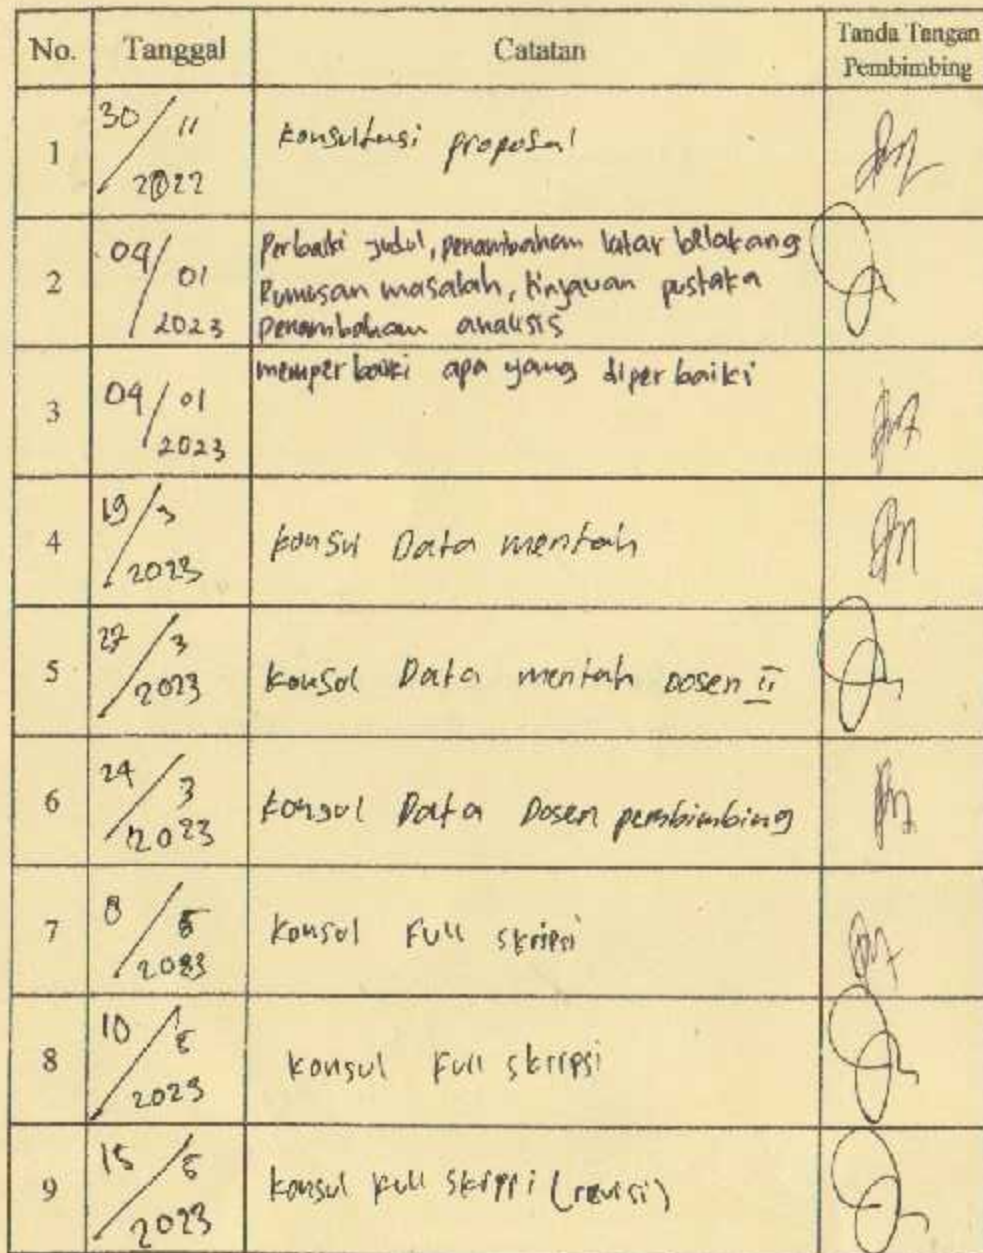 No. Tanggal Catatan Tanda Tangan
Pembimbing
1 30/11 konsultasi proposal
2022
2 04/01 Perbaiki judul, penambahan latar belakang
Rumusan masalah, tinjauan pustaka
2023 penambahan analisis
3 04/01 memperbaiki apa yang diperbaiki
2023
4 19/3 konsul Data mentah
2023
5 27/3 konsul Data mentah Dosen II
2023
6 24/3 konsul Data Dosen pembimbing
2023
7 8/5 konsul Full skripsi
2023
8 10/5 konsul Full skripsi
2023
9 15/5 konsul full skripsi (revisi)
2023